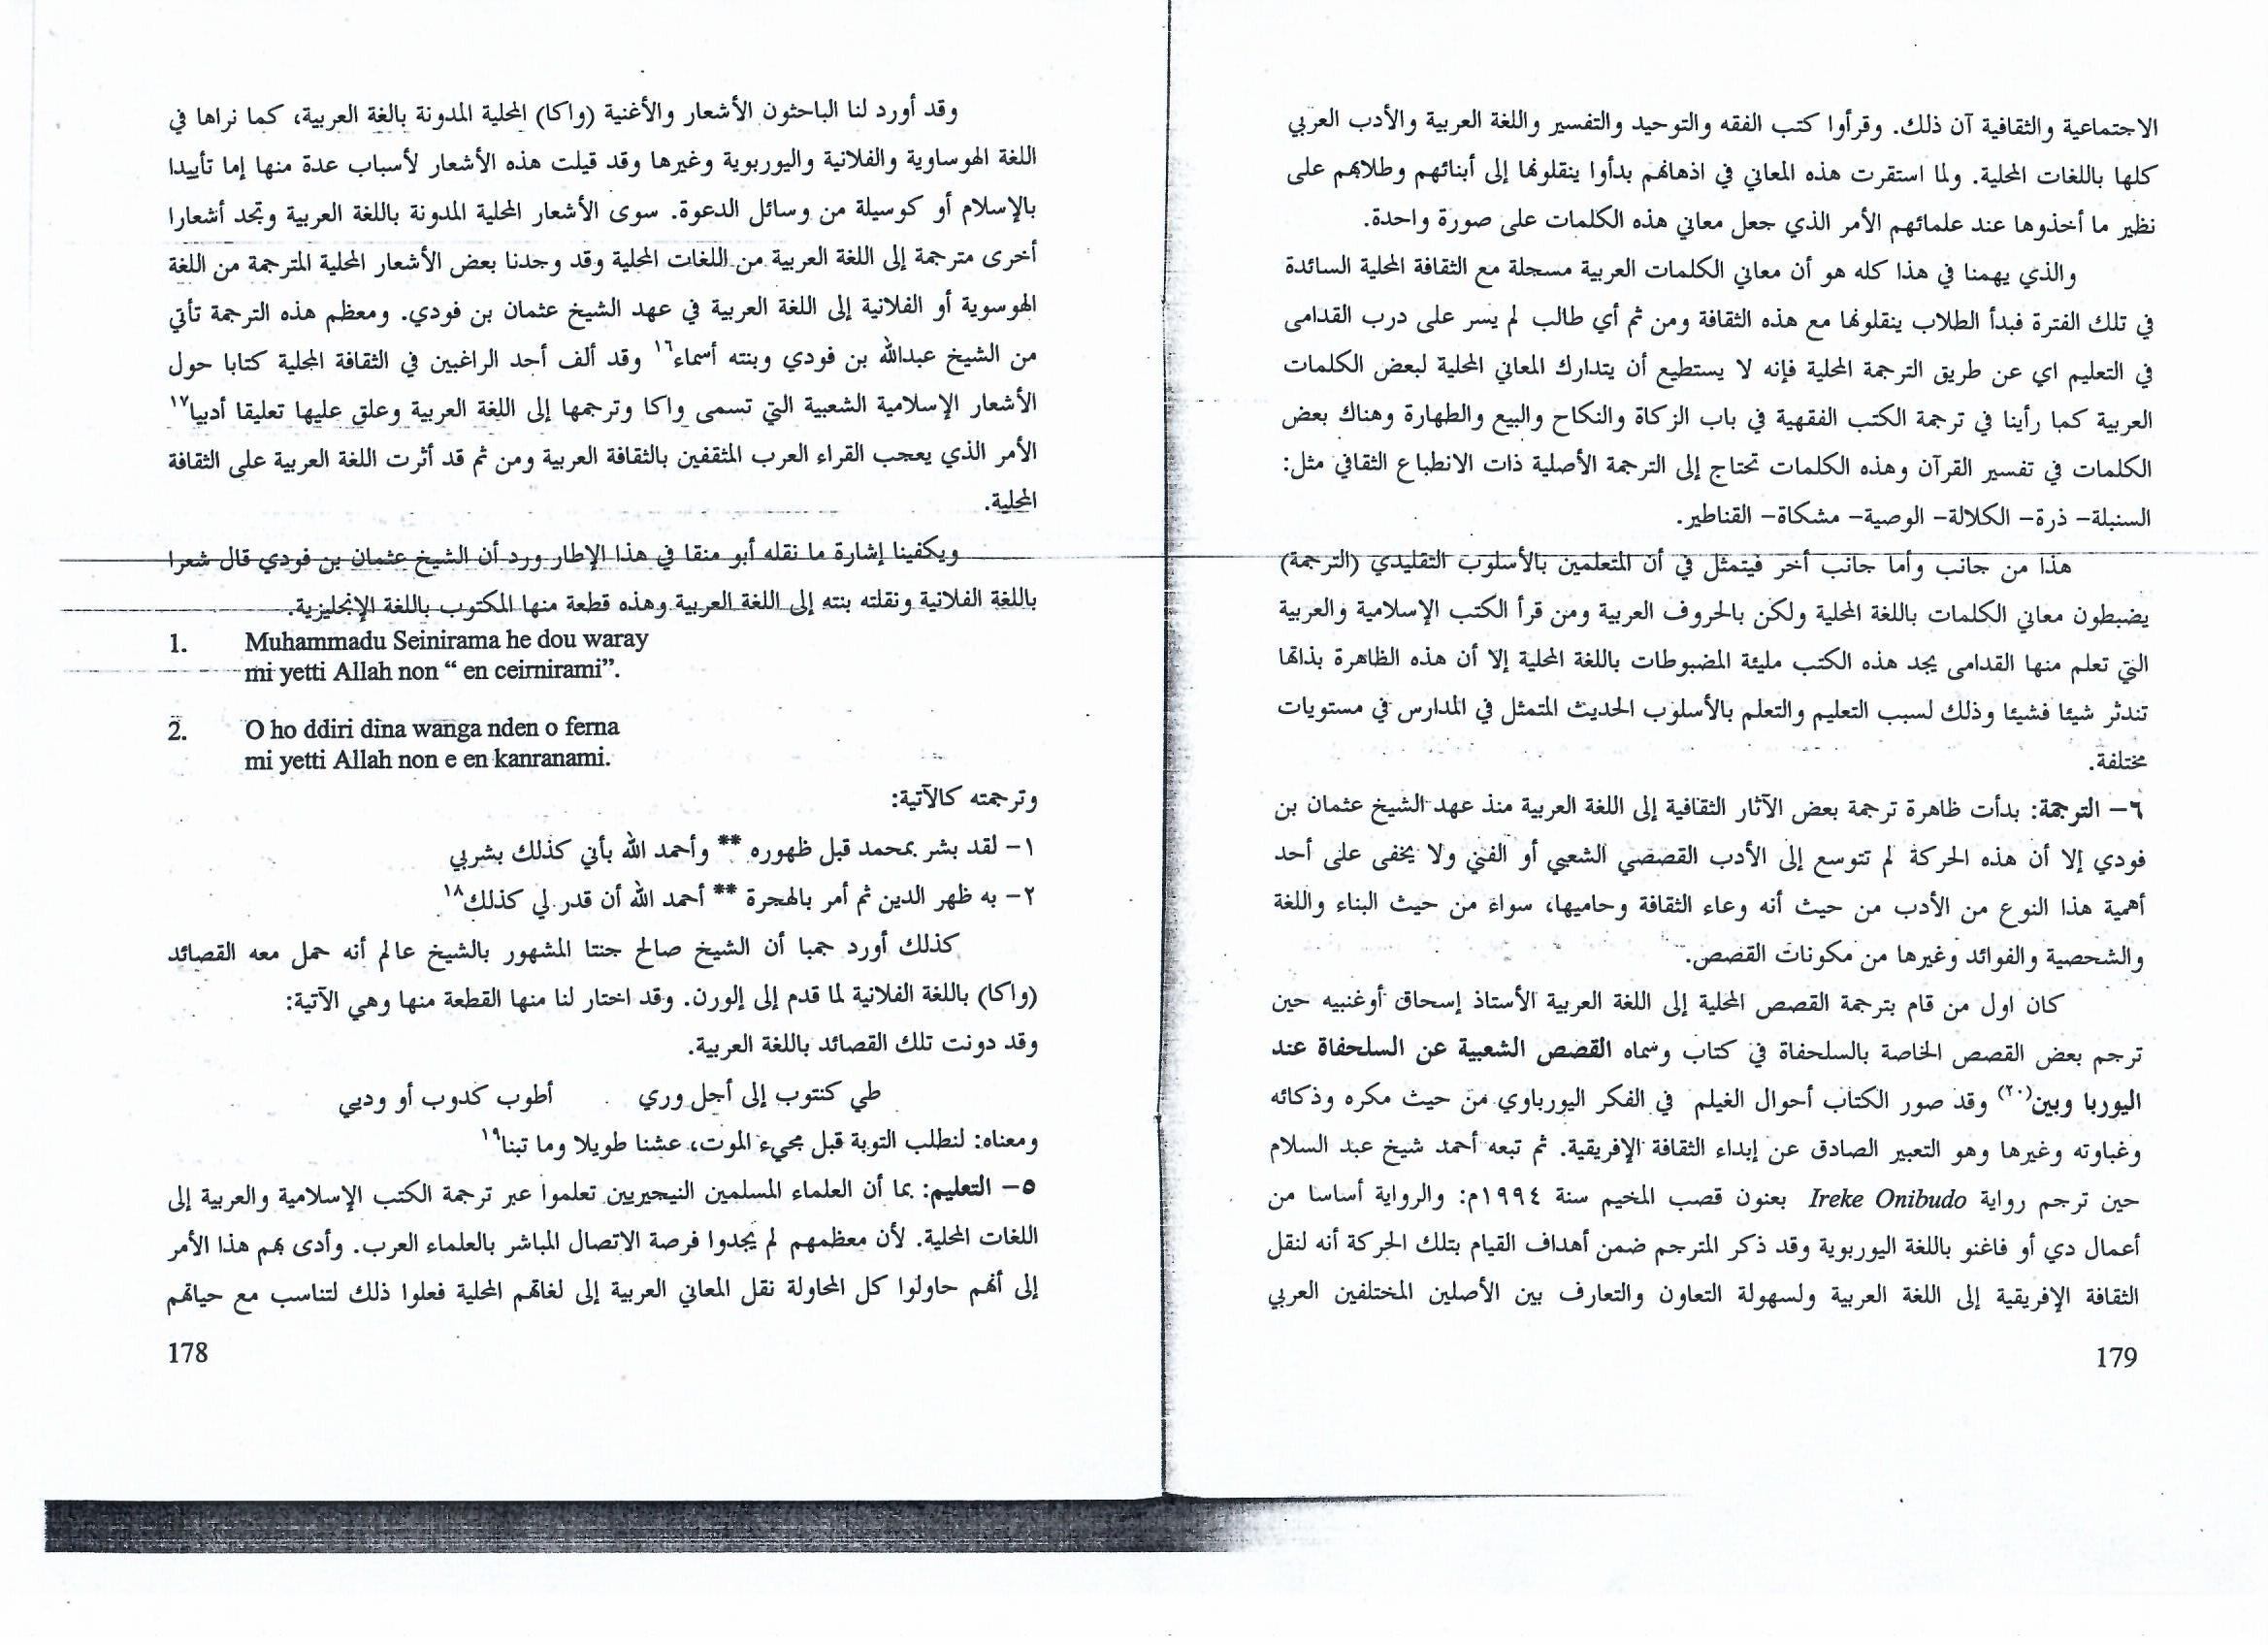 وقد أورد لنا الباحثون الأشعار والأغنية (واكا) المحلية المدونة بالغة العربية، كما نراها في
اللغة الهوساوية والفلانية واليوربوية وغيرها وقد قيلت هذه الأشعار لأسباب عدة منها إما تأييدا
بالإسلام أو كوسيلة من وسائل الدعوة. سوى الأشعار المحلية المدونة باللغة العربية وتجد أشعارا
أخرى مترجمة إلى اللغة العربية من اللغات المحلية وقد وجدنا بعض الأشعار المحلية المترجمة من اللغة
الهوسوية أو الفلانية إلى اللغة العربية في عهد الشيخ عثمان بن فودي. ومعظم هذه الترجمة تأتي
من الشيخ عبدالله بن فودي وبنته أسماء١٦ وقد ألف أحد الراغبين في الثقافة المحلية كتابا حول
الأشعار الإسلامية الشعبية التي تسمى واكا وترجمها إلى اللغة العربية وعلق عليها تعليقا أدبيا١٧
الأمر الذي يعجب القراء العرب المثقفين بالثقافة العربية ومن ثم قد أثرت اللغة العربية على الثقافة
المحلية.
ويكفينا إشارة ما نقله أبو منقا في هذا الإطار ورد أن الشيخ عثمان بن فودي قال شعرا
باللغة الفلانية ونقلته بنته إلى اللغة العربية وهذه قطعة منها المكتوب باللغة الإنجليزية.
1. Muhammadu Seinirama he dou waray
mi yetti Allah non “ en ceirnirami”.
2. O ho ddiri dina wanga nden o ferna
mi yetti Allah non e en kanranami.
وترجمته كالآتية:
١– لقد بشر بمحمد قبل ظهوره ** وأحمد الله بأني كذلك بشربي
٢– به ظهر الدين ثم أمر بالهجرة ** أحمد الله أن قدر لي كذلك١٨
كذلك أورد جمبا أن الشيخ صالح جنتا المشهور بالشيخ عالم أنه حمل معه القصائد
(واكا) باللغة الفلانية لما قدم إلى إلورن. وقد اختار لنا منها القطعة منها وهي الآتية:
وقد دونت تلك القصائد باللغة العربية.
طي كنتوب إلى أجل وري أطوب كدوب أو وديي
ومعناه: لنطلب التوبة قبل مجيء الموت، عشنا طويلا وما تبنا١٩
٥– التعليم: بما أن العلماء المسلمين النيجيريين تعلموا عبر ترجمة الكتب الإسلامية والعربية إلى
اللغات المحلية. لأن معظمهم لم يجدوا فرصة الاتصال المباشر بالعلماء العرب. وأدى بهم هذا الأمر
إلى أنهم حاولوا كل المحاولة نقل المعاني العربية إلى لغاتهم المحلية فعلوا ذلك لتناسب مع حياتهم
178
الاجتماعية والثقافية آن ذلك. وقرأوا كتب الفقه والتوحيد والتفسير واللغة العربية والأدب العربي
كلها باللغات المحلية. ولما استقرت هذه المعاني في اذهانهم بدأوا ينقلونها إلى أبنائهم وطلابهم على
نظير ما أخذوها عند علمائهم الأمر الذي جعل معاني هذه الكلمات على صورة واحدة.
والذي يهمنا في هذا كله هو أن معاني الكلمات العربية مسجلة مع الثقافة المحلية السائدة
في تلك الفترة فبدأ الطلاب ينقلونها مع هذه الثقافة ومن ثم أي طالب لم يسر على درب القدامى
في التعليم اي عن طريق الترجمة المحلية فإنه لا يستطيع أن يتدارك المعاني المحلية لبعض الكلمات
العربية كما رأينا في ترجمة الكتب الفقهية في باب الزكاة والنكاح والبيع والطهارة وهناك بعض
الكلمات في تفسير القرآن وهذه الكلمات تحتاج إلى الترجمة الأصلية ذات الانطباع الثقافي مثل:
السنبلة– ذرة– الكلالة– الوصية– مشكاة– القناطير.
هذا من جانب وأما جانب أخر فيتمثل في أن المتعلمين بالأسلوب التقليدي (الترجمة)
يضبطون معاني الكلمات باللغة المحلية ولكن بالحروف العربية ومن قرأ الكتب الإسلامية والعربية
التي تعلم منها القدامى يجد هذه الكتب مليئة المضبوطات باللغة المحلية إلا أن هذه الظاهرة بذاتها
تندثر شيئا فشيئا وذلك لسبب التعليم والتعلم بالأسلوب الحديث المتمثل في المدارس في مستويات
مختلفة.
٦– الترجمة: بدأت ظاهرة ترجمة بعض الآثار الثقافية إلى اللغة العربية منذ عهد الشيخ عثمان بن
فودي إلا أن هذه الحركة لم تتوسع إلى الأدب القصصي الشعبي أو الفني ولا يخفى على أحد
أهمية هذا النوع من الأدب من حيث أنه وعاء الثقافة وحاميها، سواء من حيث البناء واللغة
والشخصية والفوائد وغيرها من مكونات القصص.
كان اول من قام بترجمة القصص المحلية إلى اللغة العربية الأستاذ إسحاق أوغنبيه حين
ترجم بعض القصص الخاصة بالسلحفاة في كتاب وسماه القصص الشعبية عن السلحفاة عند
اليوربا وبين(٢٠) وقد صور الكتاب أحوال الغيلم في الفكر اليورباوي من حيث مكره وذكائه
وغباوته وغيرها وهو التعبير الصادق عن إبداء الثقافة الإفريقية. ثم تبعه أحمد شيخ عبد السلام
حين ترجم رواية Ireke Onibudo بعنون قصب المخيم سنة ١٩٩٤م: والرواية أساسا من
أعمال دي أو فاغنو باللغة اليوربوية وقد ذكر المترجم ضمن أهداف القيام بتلك الحركة أنه لنقل
الثقافة الإفريقية إلى اللغة العربية ولسهولة التعاون والتعارف بين الأصلين المختلفين العربي
179